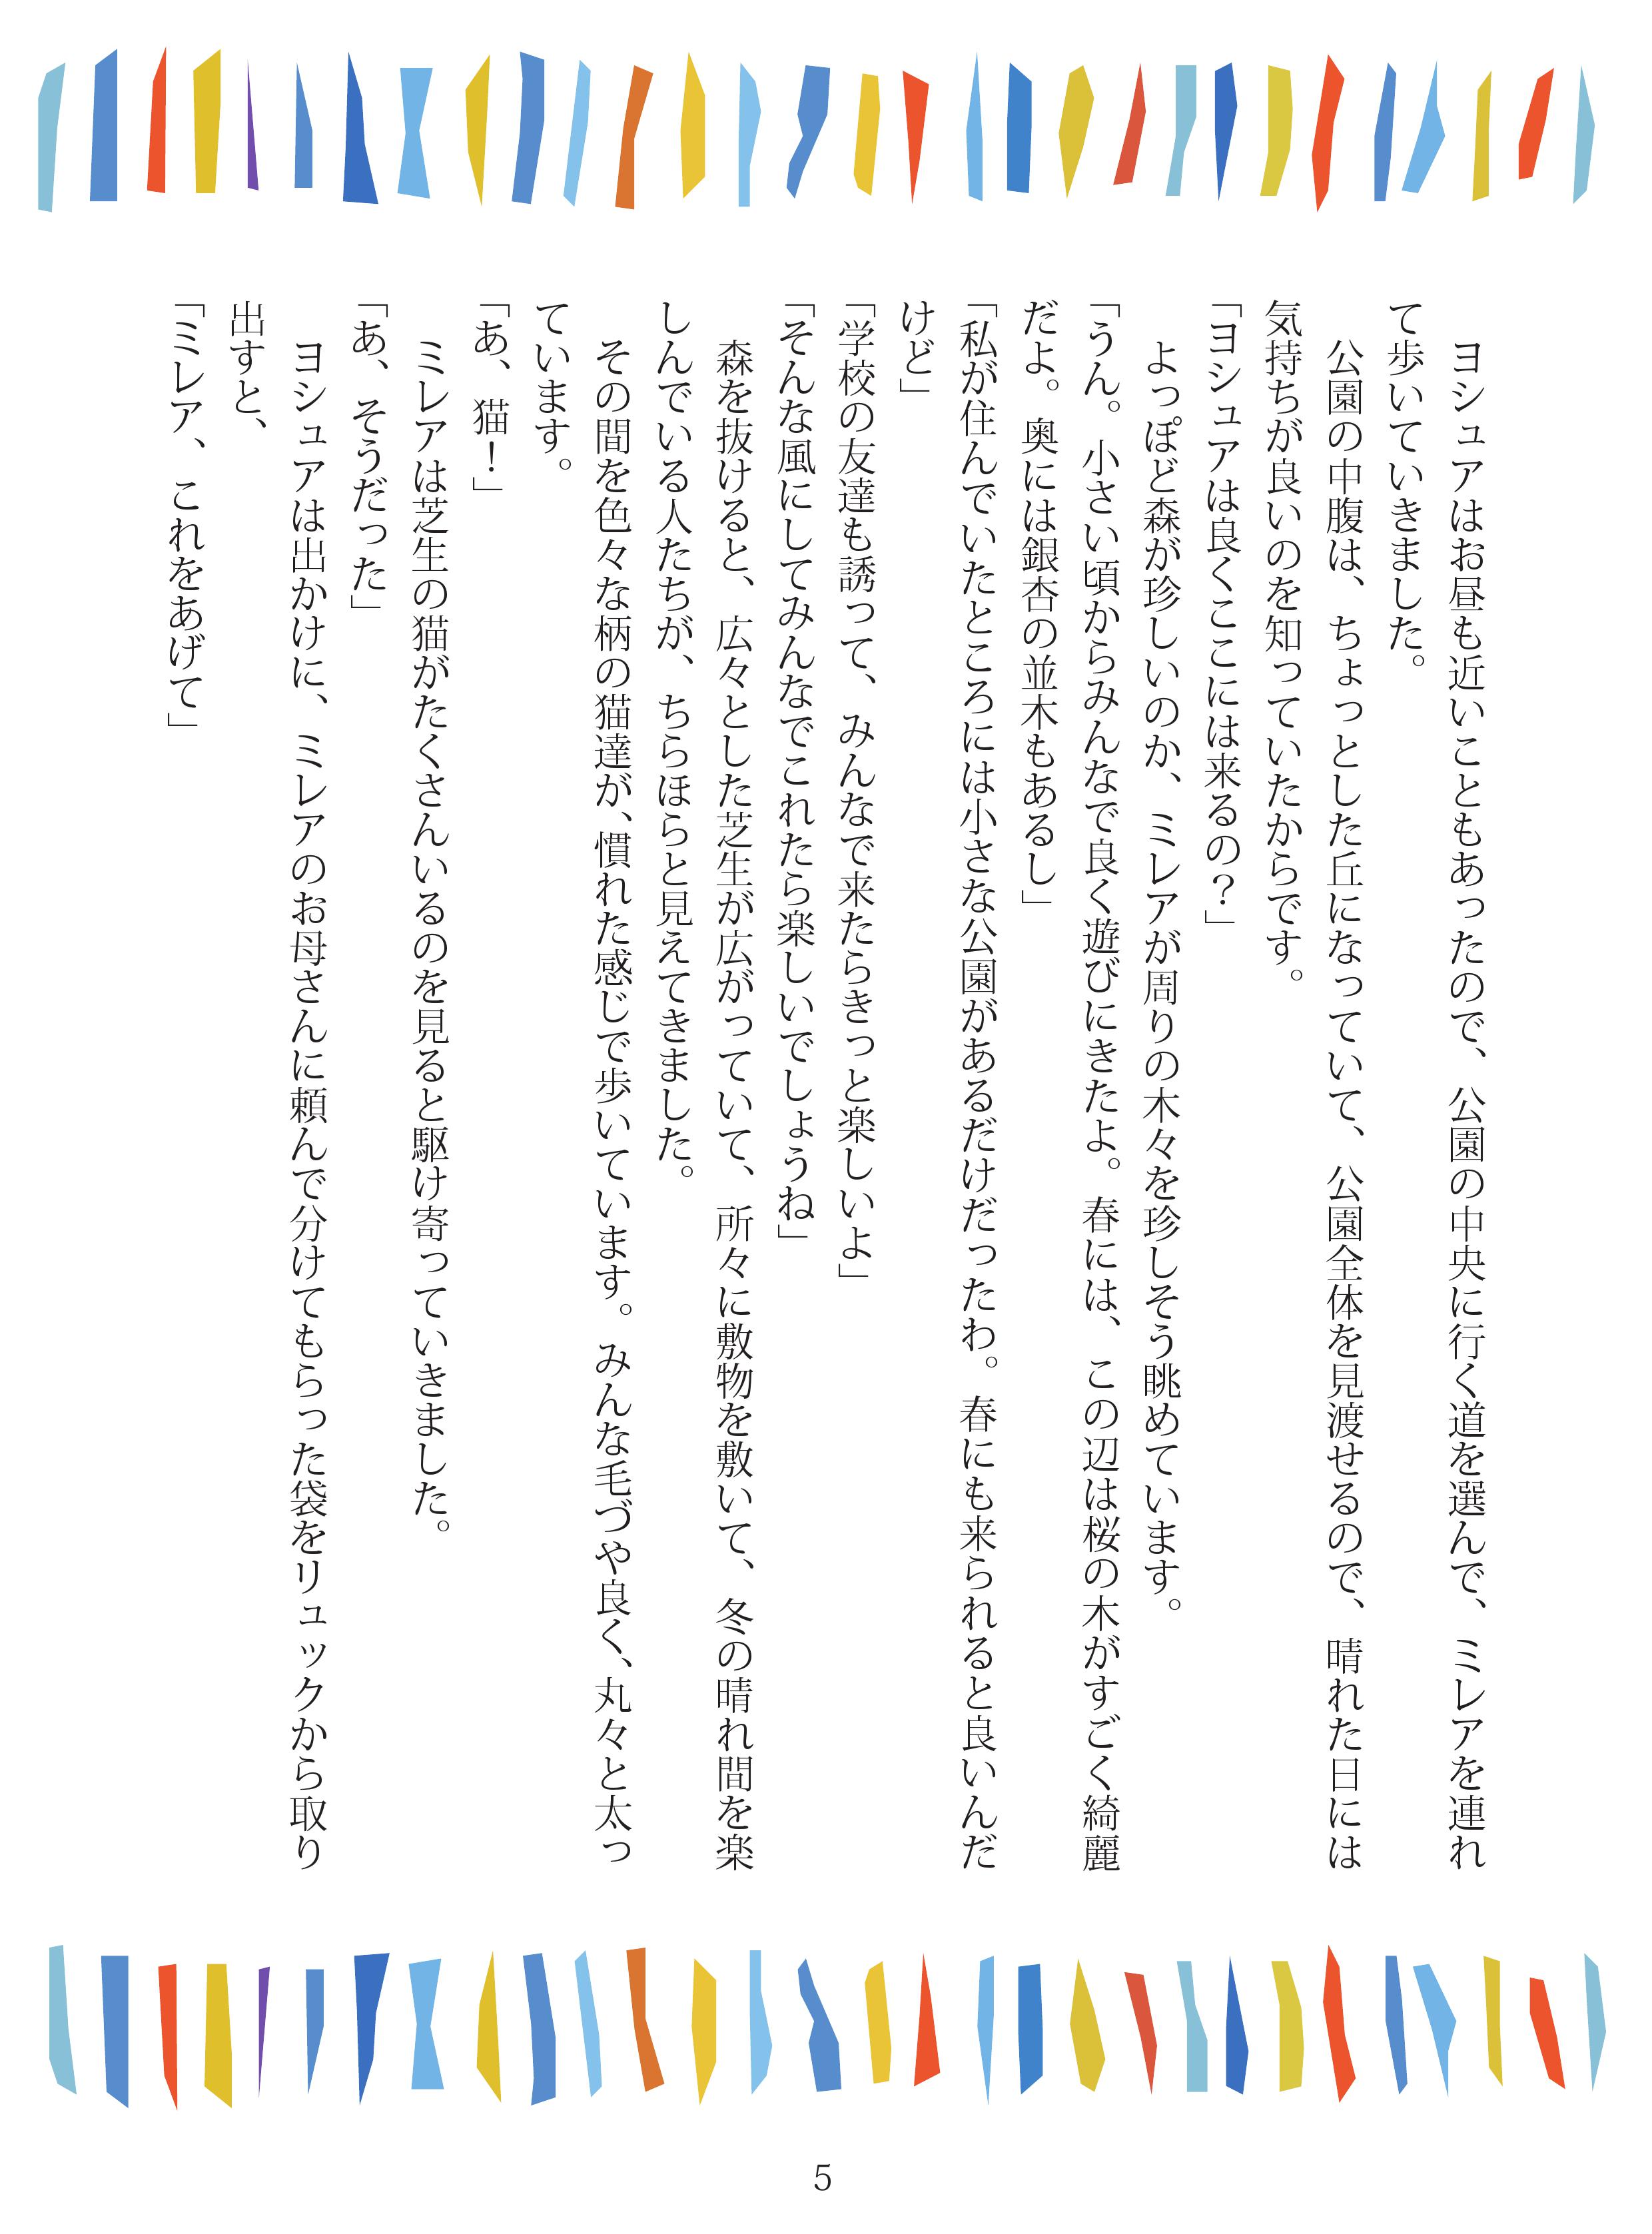 ヨシュアはお昼も近いこともあったので、公園の中央に行く道を選んで、ミレアを連れ
て歩いていきました。
公園の中腹は、ちょっとした丘になっていて、公園全体を見渡せるので、晴れた日には
気持ちが良いのを知っていたからです。
「ヨシュアは良くここには来るの？」
よっぽど森が珍しいのか、ミレアが周りの木々を珍しそう眺めています。
「うん。小さい頃からみんなで良く遊びにきたよ。春には、この辺は桜の木がすごく綺麗
だよ。奥には銀杏の並木もあるし」
「私が住んでいたところには小さな公園があるだけだったわ。春にも来られると良いんだ
けど」
「学校の友達も誘って、みんなで来たらきっと楽しいよ」
「そんな風にしてみんなでこれたら楽しいでしょうね」
森を抜けると、広々とした芝生が広がっていて、所々に敷物を敷いて、冬の晴れ間を楽
しんでいる人たちが、ちらほらと見えてきました。
その間を色々な柄の猫達が、慣れた感じで歩いています。みんな毛づや良く、丸々と太っ
ています。
「あ、猫！」
ミレアは芝生の猫がたくさんいるのを見ると駆け寄っていきました。
「あ、そうだった」
ヨシュアは出かけに、ミレアのお母さんに頼んで分けてもらった袋をリュックから取り
出すと、
「ミレア、これをあげて」
5